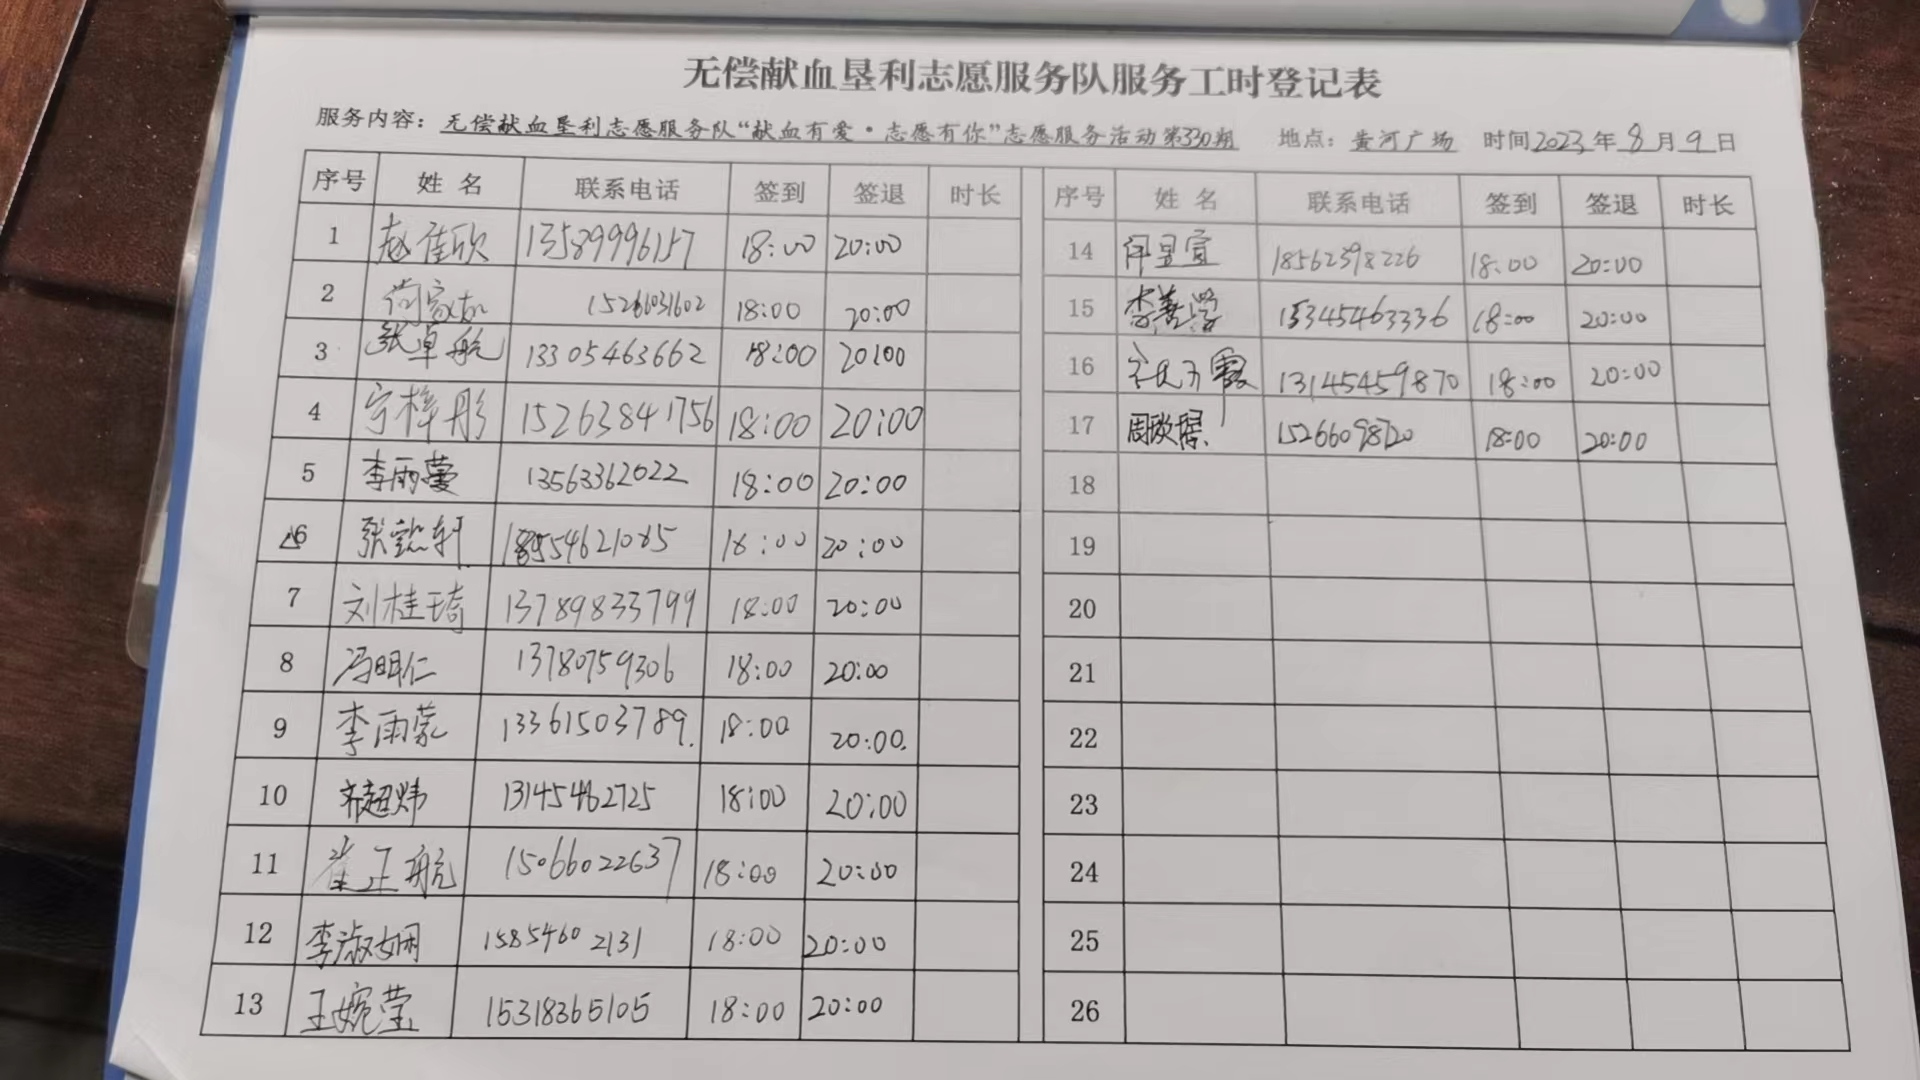 无偿献血垦利志愿服务队服务工时登记表
服务内容：无偿献血垦利志愿服务队“献血有爱·志愿有你”志愿服务活动第330期 地点：黄河广场 时间2023年8月9日
序号 姓名 联系电话 签到 签退 时长 序号 姓名 联系电话 签到 签退 时长
1 赵佳欣 13589996157 18:00 20:00
2 15266031602 18:00 20:00
3 张卓航 13305463662 18:00 20:00
4 宁梓彤 15263841756 18:00 20:00
5 李雨蔓 13563362022 18:00 20:00
6 张懿轩 18:00 20:00
7 刘桂琦 13789833799 18:00 20:00
8 冯明仁 13780759306 18:00 20:00
9 李雨蒙 13361503789. 18:00 20:00.
10 超炜 13145462725 18:00 20:00
11 崔正航 15066022637 18:00 20:00
12 李淑娴 15854602131 18:00 20:00
13 王婉莹 15318365105 18:00 20:00
14 18562398226 18:00 20:00
15 李善学 15345463336 18:00 20:00
16 13145459870 18:00 20:00
17 周 15266098720 18:00 20:00
18
19
20
21
22
23
24
25
26